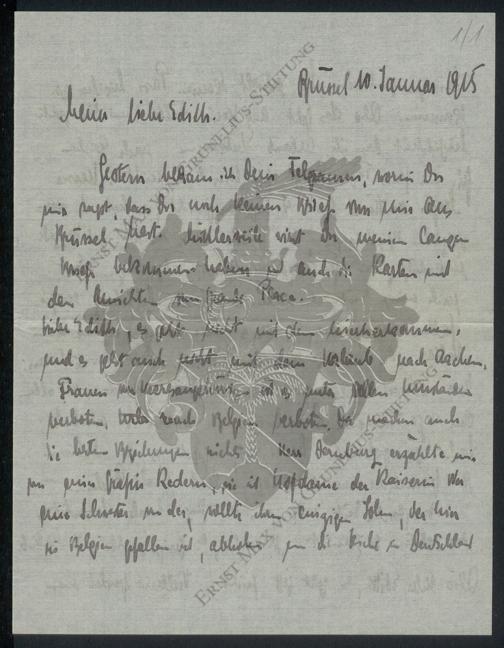 1/1
Brüssel 10. Januar 1915
Meine liebe Edith.
Gestern bekam ich Dein Telegramm, worin Du
mir sagst, dass Du noch keinen Brief von mir aus
Brüssel hast. Mittlerweile wirst Du meinen langen
Brief bekommen haben u auch die Karten mit
den Ansichten von Grande Place.
Liebe Edith, es geht nicht mit dem hierherkommen,
und es geht auch nicht mit dem Urlaub nach Aachen.
Frauen von Heeresangehörigen ist es unter allen Umständen
verboten, nach Belgien Da machen auch
die besten Beziehungen nichts. Herr Dernburg erzählte mir
von einer Gräfin Redern, sie ist Hofdame der Kaiserin
eine Schwester von der, wollte ihren einzigen Sohn, der hier
in Belgien gefallen ist, abholen, um die Leiche in Deutschland
ERNST MAX VON GRUNELIUS-STIFTUNG
ERNST MAX VON GRUNELIUS-STIFTUNG